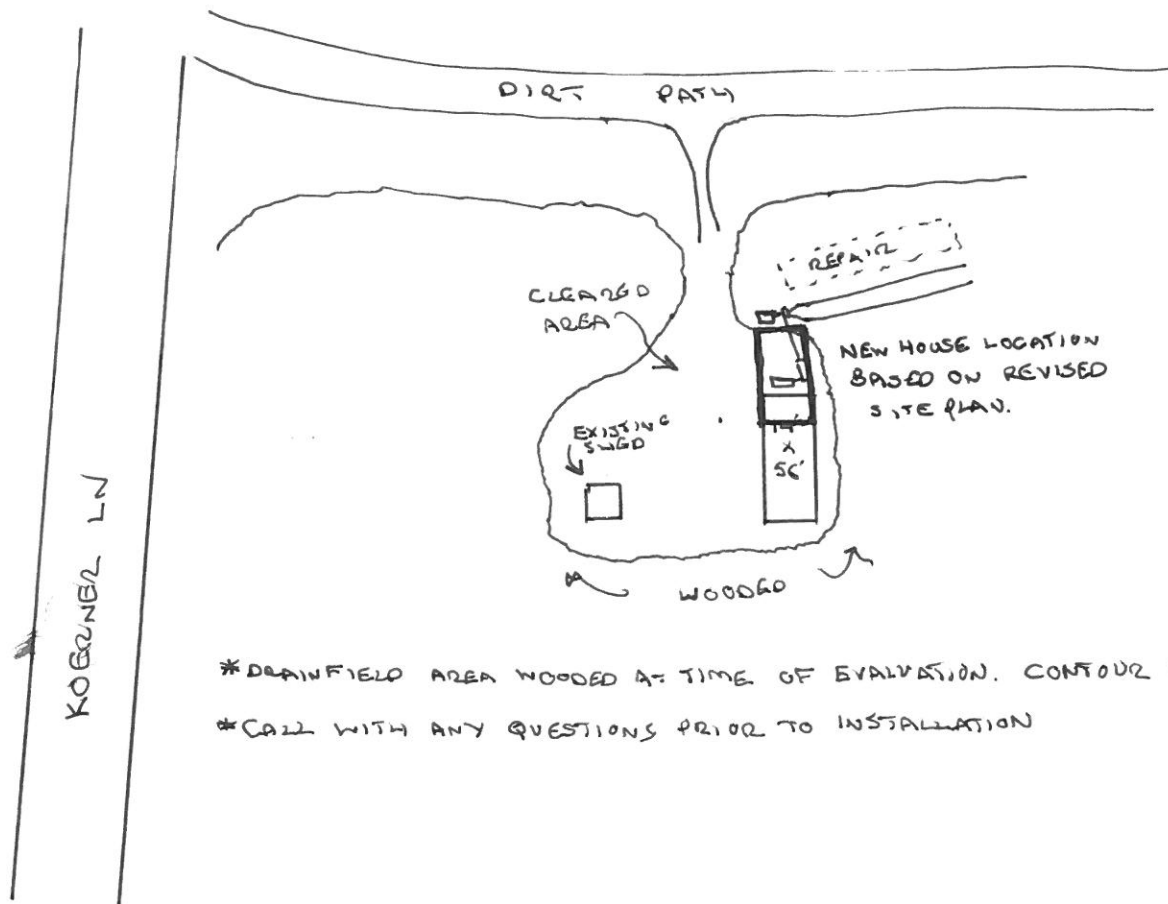 DIRT PATH
REPAIR
CLEARED
AREA
NEW HOUSE LOCATION
BASED ON REVISED
SITE PLAN.
EXISTING
SHED
X
56'
WOODED
KOERNER LN
*DRAINFIELD AREA WOODED AT TIME OF EVALUATION. CONTOUR
*CALL WITH ANY QUESTIONS PRIOR TO INSTALLATION